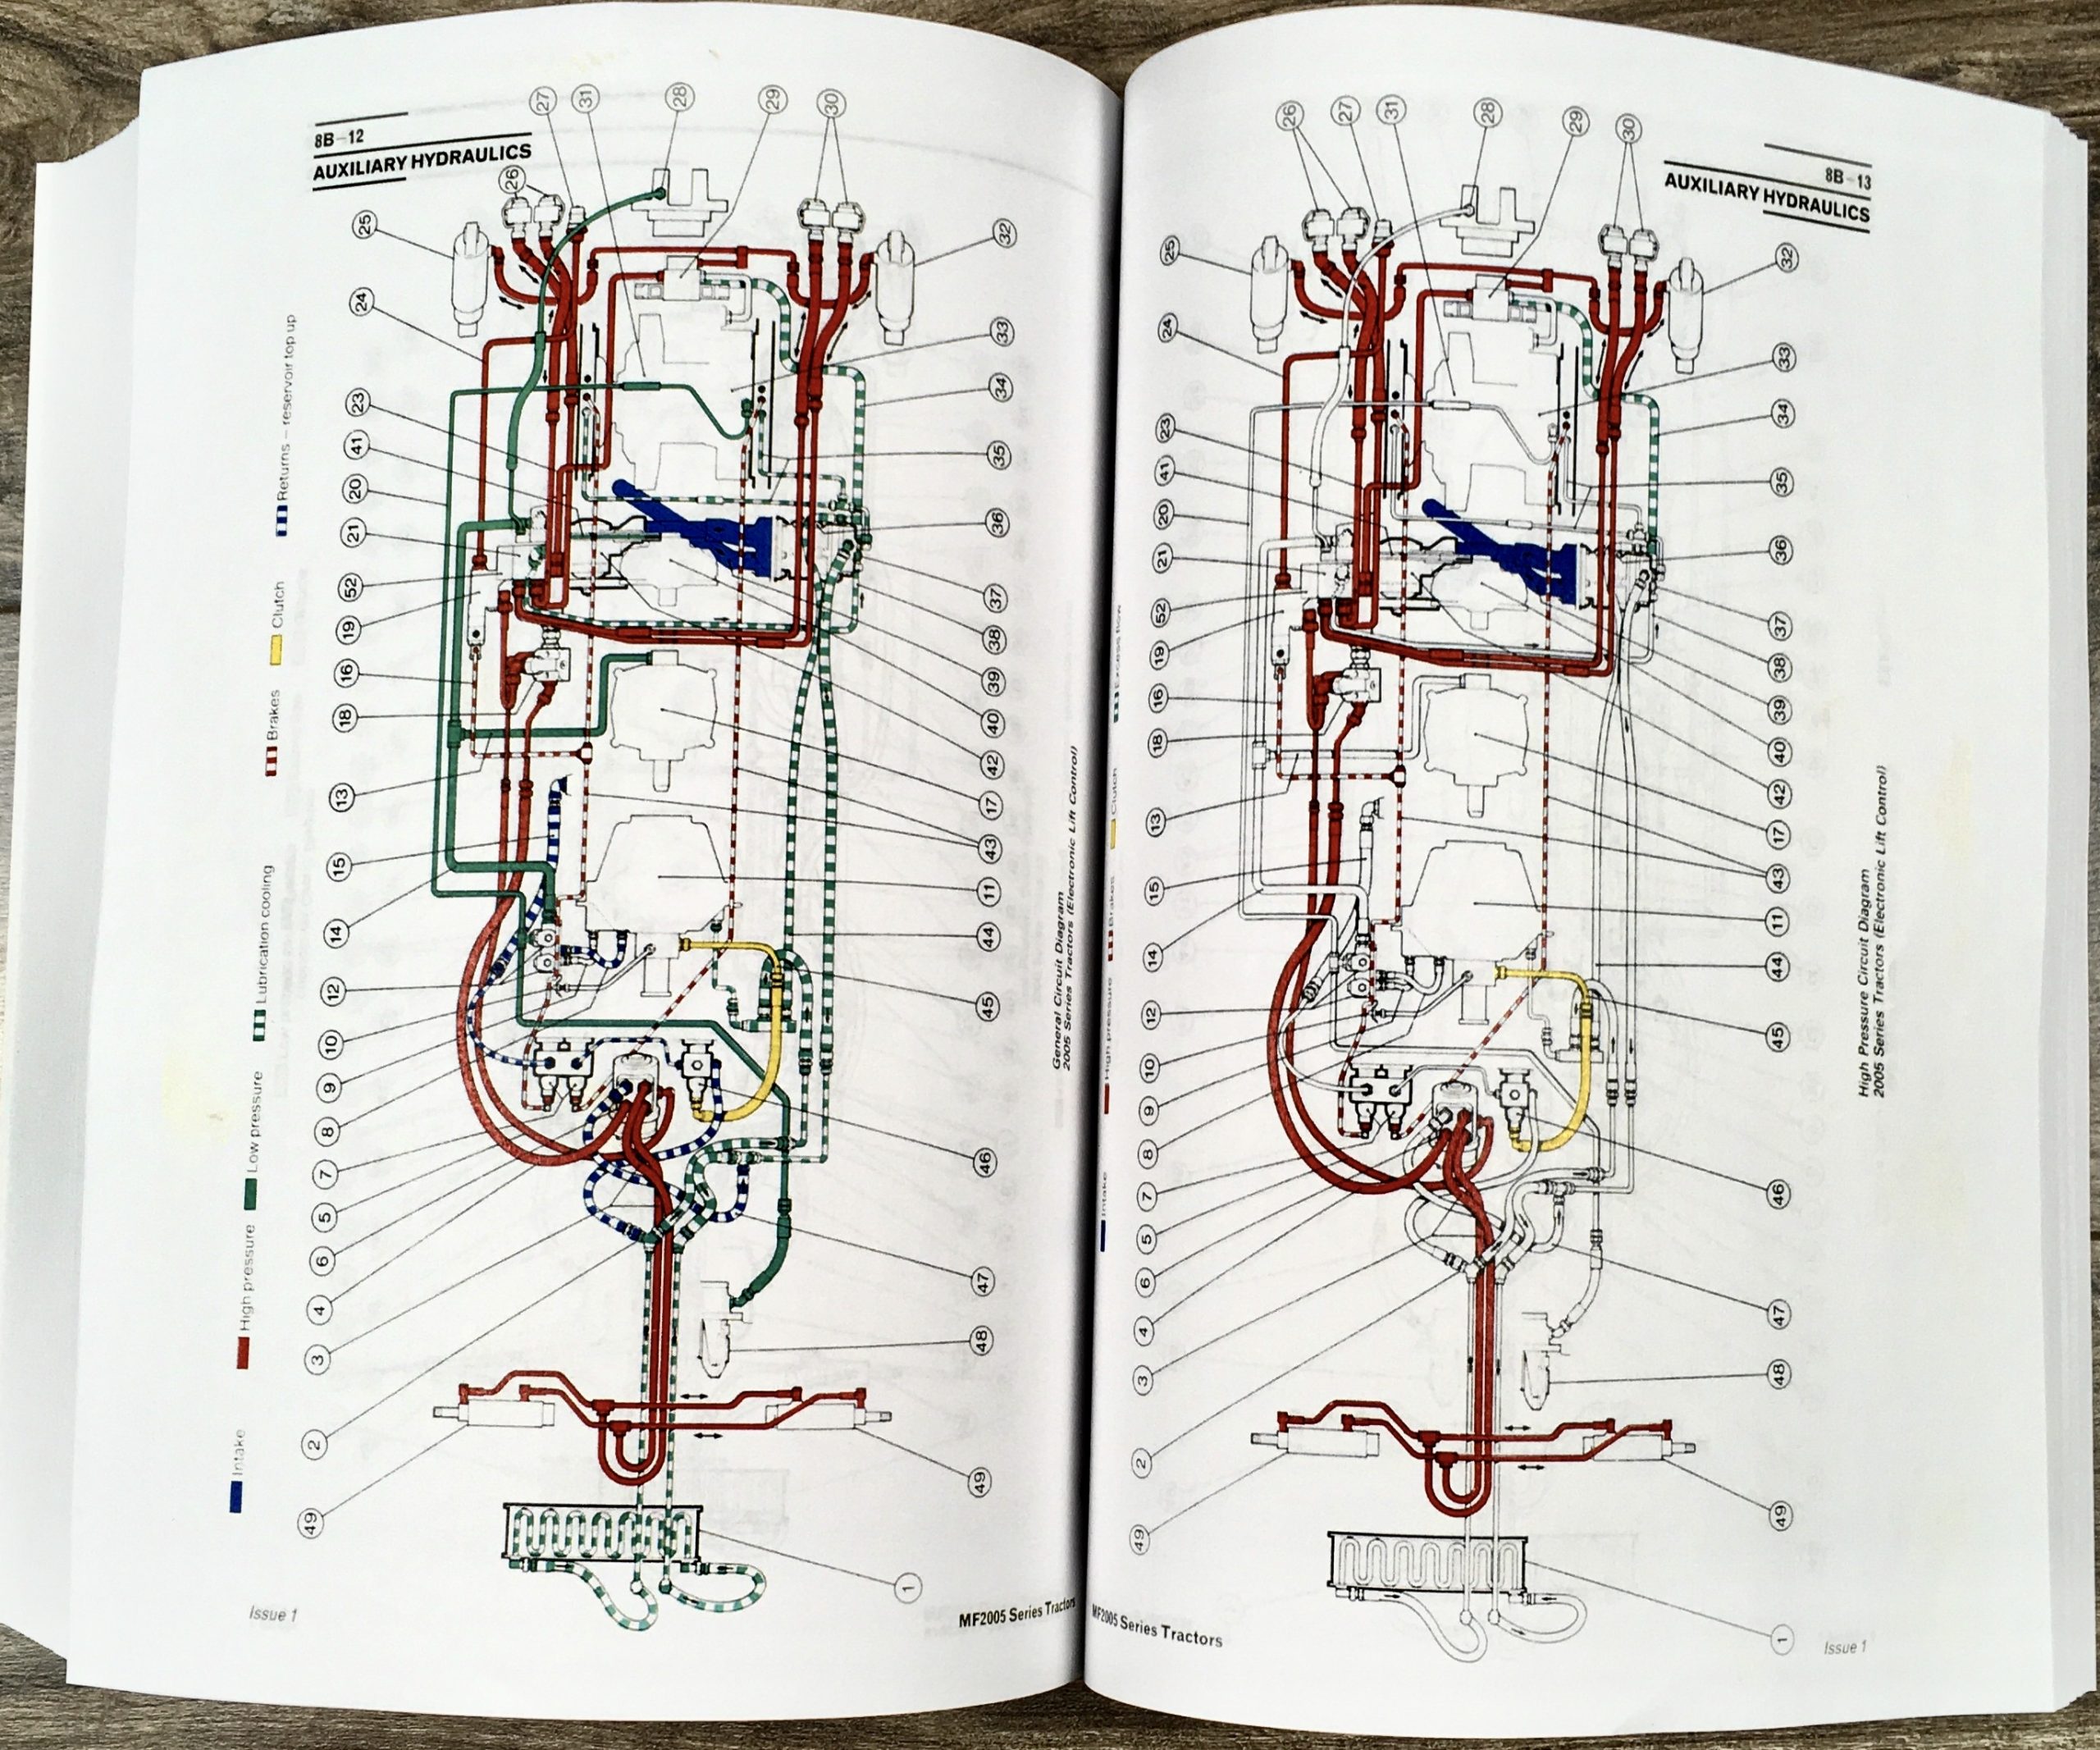 8B-12
AUXILIARY HYDRAULICS
Intake
High pressure
Low pressure
Lubrication cooling
Brakes
Clutch
Returns – reservoir top up
27
31
28
29
30
26
25
32
24
33
23
34
41
35
20
21
36
52
37
19
38
16
39
18
40
42
13
17
15
43
11
14
44
12
45
10
9
8
7
46
5
6
4
47
3
48
2
49
49
1
General Circuit Diagram
2005 Series Tractors (Electronic Lift Control)
Issue 1
MF2005 Series Tractors
8B-13
AUXILIARY HYDRAULICS
Intake
High pressure
Brakes
Clutch
Excess flow
26
27
31
28
29
30
25
32
24
33
23
34
41
35
20
21
36
52
37
19
38
16
39
18
40
42
13
17
15
43
11
14
44
12
45
10
9
8
7
46
5
6
4
47
3
48
2
49
49
1
High Pressure Circuit Diagram
2005 Series Tractors (Electronic Lift Control)
MF2005 Series Tractors
Issue 1